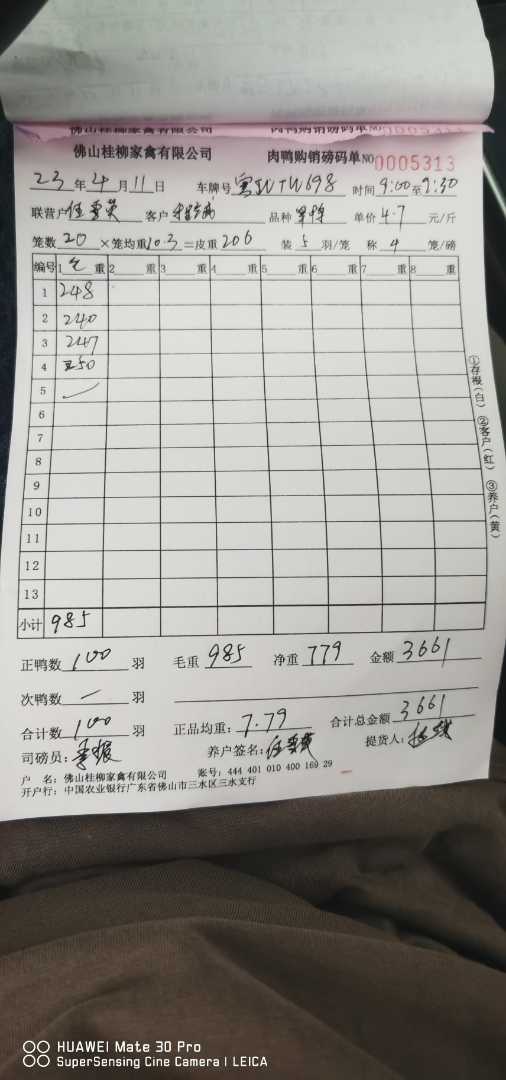 佛山桂柳家禽有限公司 肉鸭购销磅码单 NO 0005313
23 年 4 月 11 日 车牌号 时间 9:00 至 9:30
联营户 客户 品种 单价 4.7 元/斤
笼数 20 ×笼均重 10.3 =皮重 206 装 5 羽/笼 称 4 笼/磅
编号 1 毛 重 2 重 3 重 4 重 5 重 6 重 7 重 8 重
1 248
2 240
3 247
4 250
5
6
7
8
9
10
11
12
13
小计 985
①存根(白) ②客户(红) ③养户(黄)
正鸭数 100 羽 毛重 985 净重 779 金额 3661
次鸭数 羽
合计数 100 羽 正品均重: 7.79 合计总金额 3661
司磅员: 养户签名: 提货人:
户 名: 佛山桂柳家禽有限公司 账号: 444 401 010 400 169 29
开户行: 中国农业银行广东省佛山市三水区三水支行
HUAWEI Mate 30 Pro
SuperSensing Cine Camera | LEICA